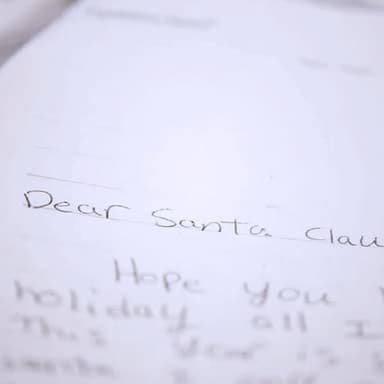 Dear Santa Clau
Hope you
holiday all I
This year is